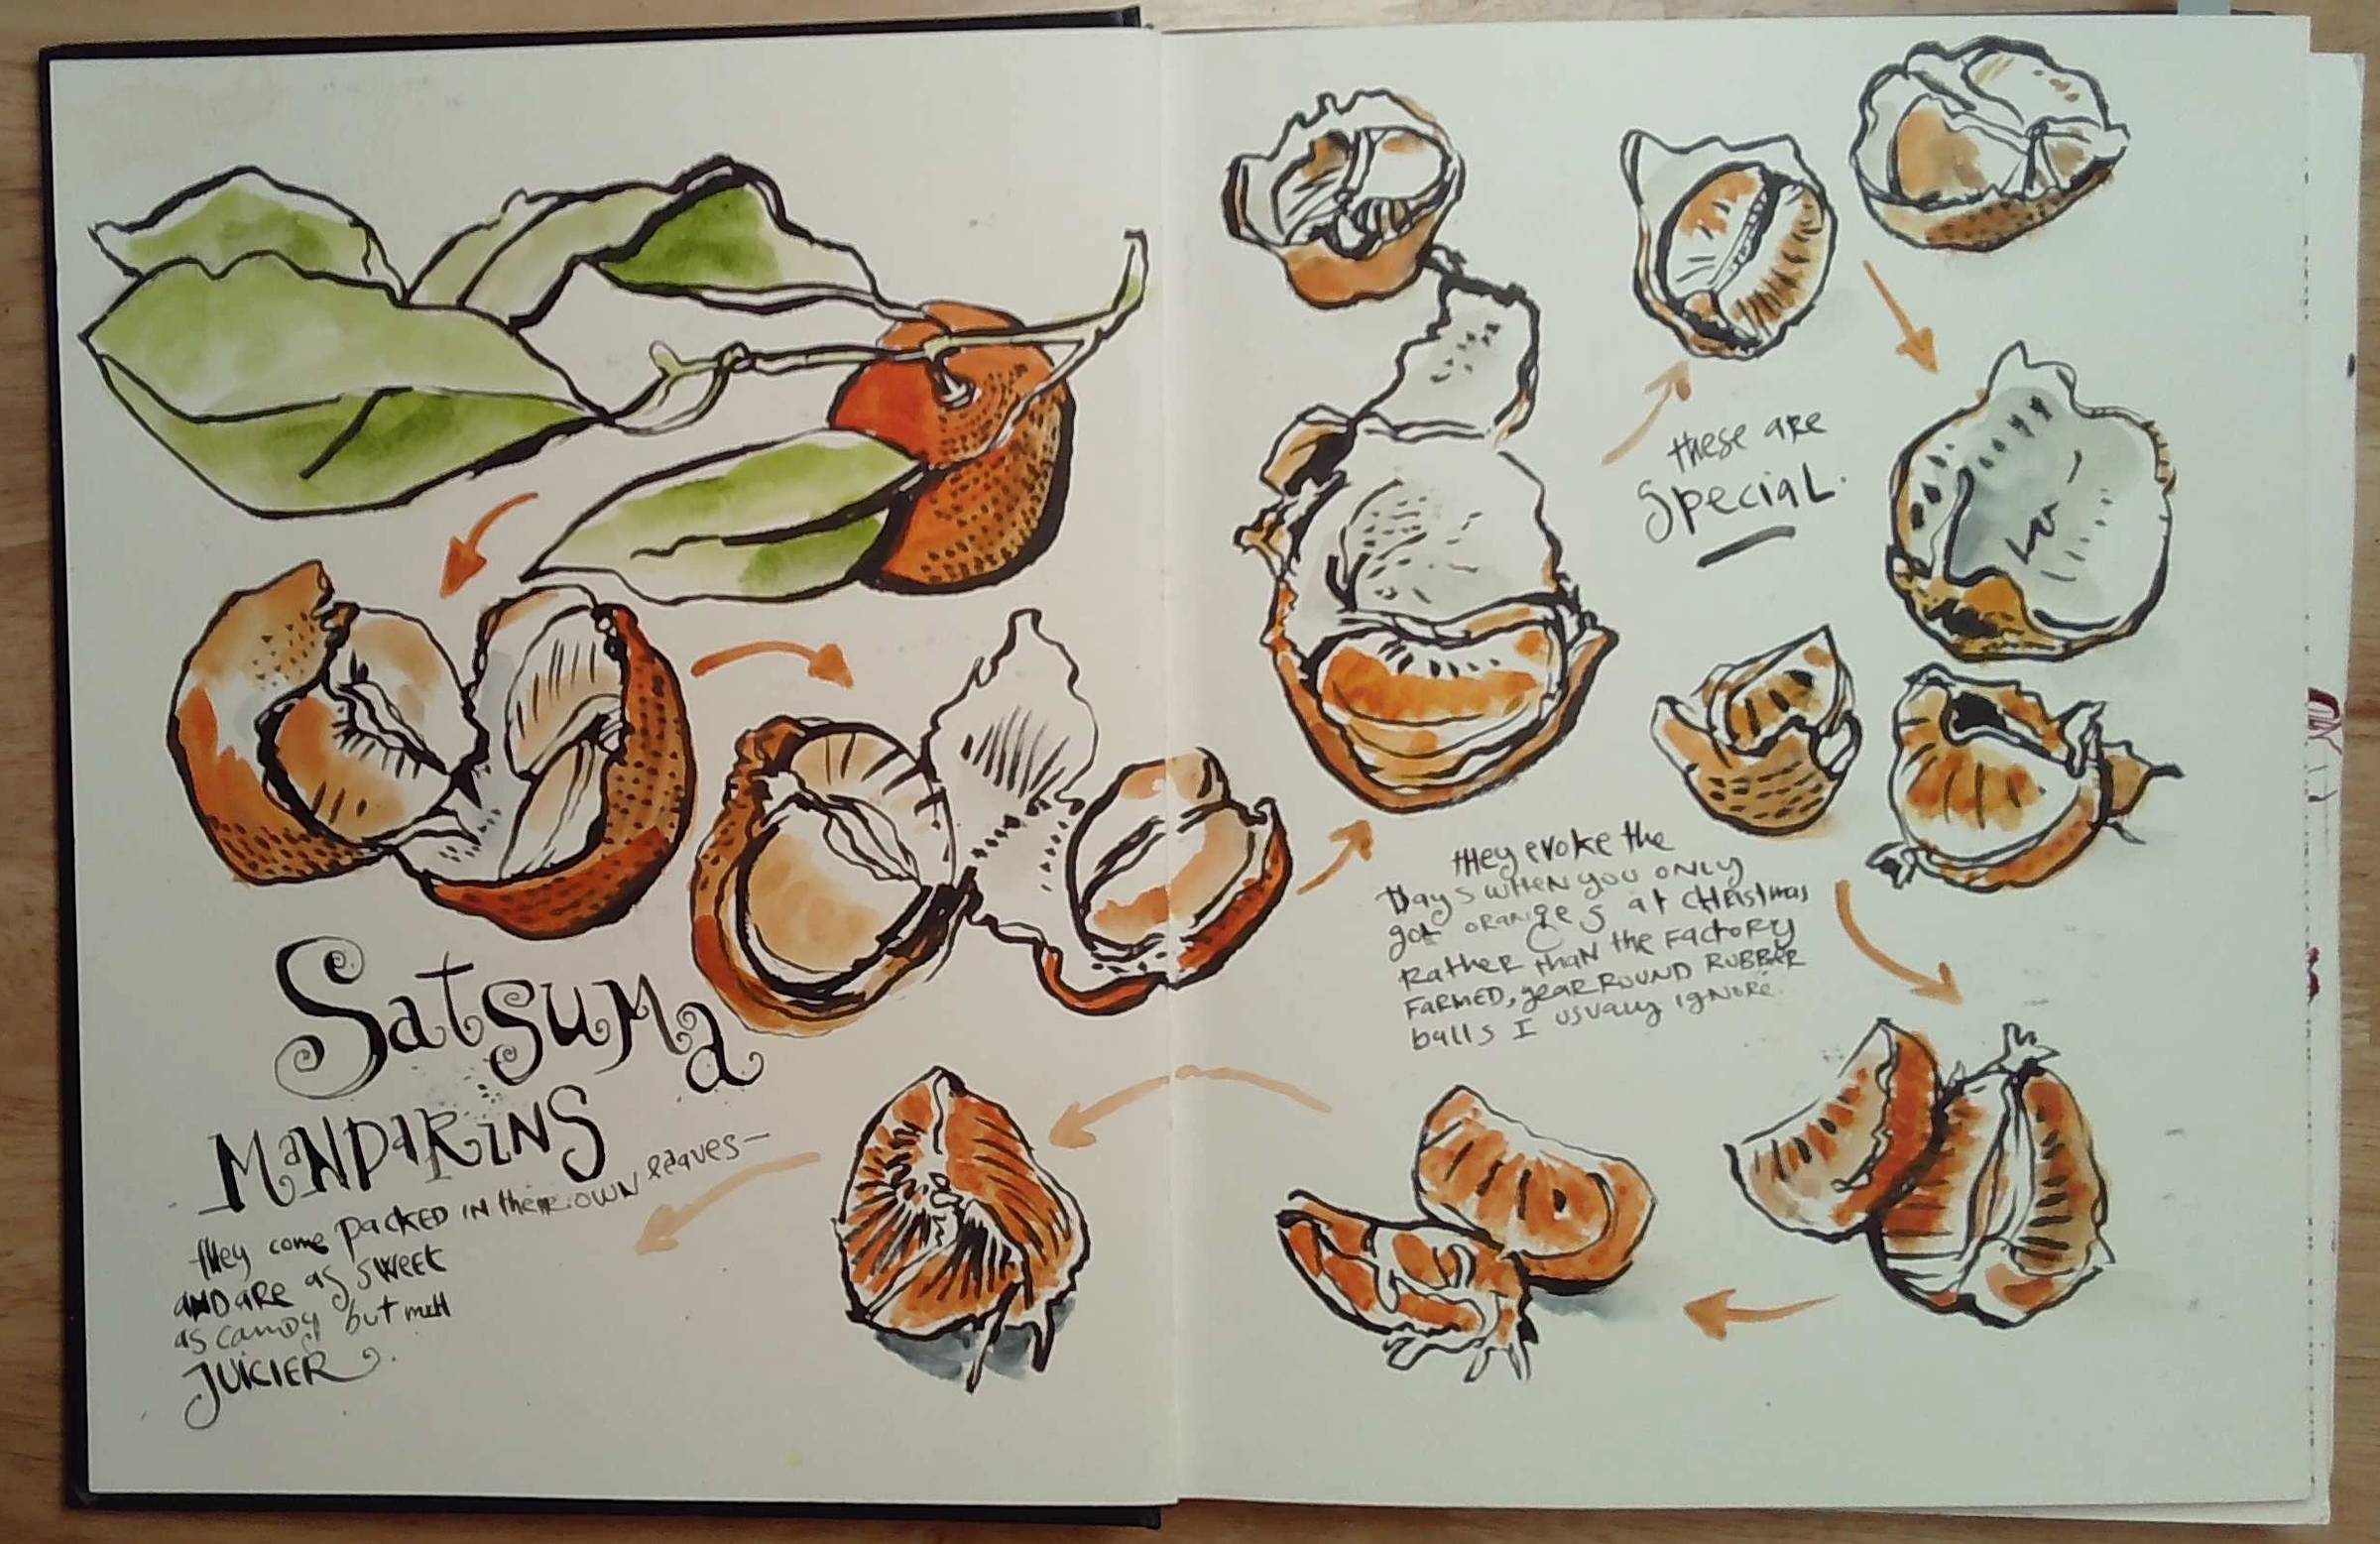 Satsuma
MANDARINS
they come packed in their own leaves—
AND are as sweet
as candy but much
JUICIER.
these are
special.
they evoke the
Days when you only
got oranges at christmas
Rather than the factory
FARMED, year ROUND RUBBER
balls I usually ignore.